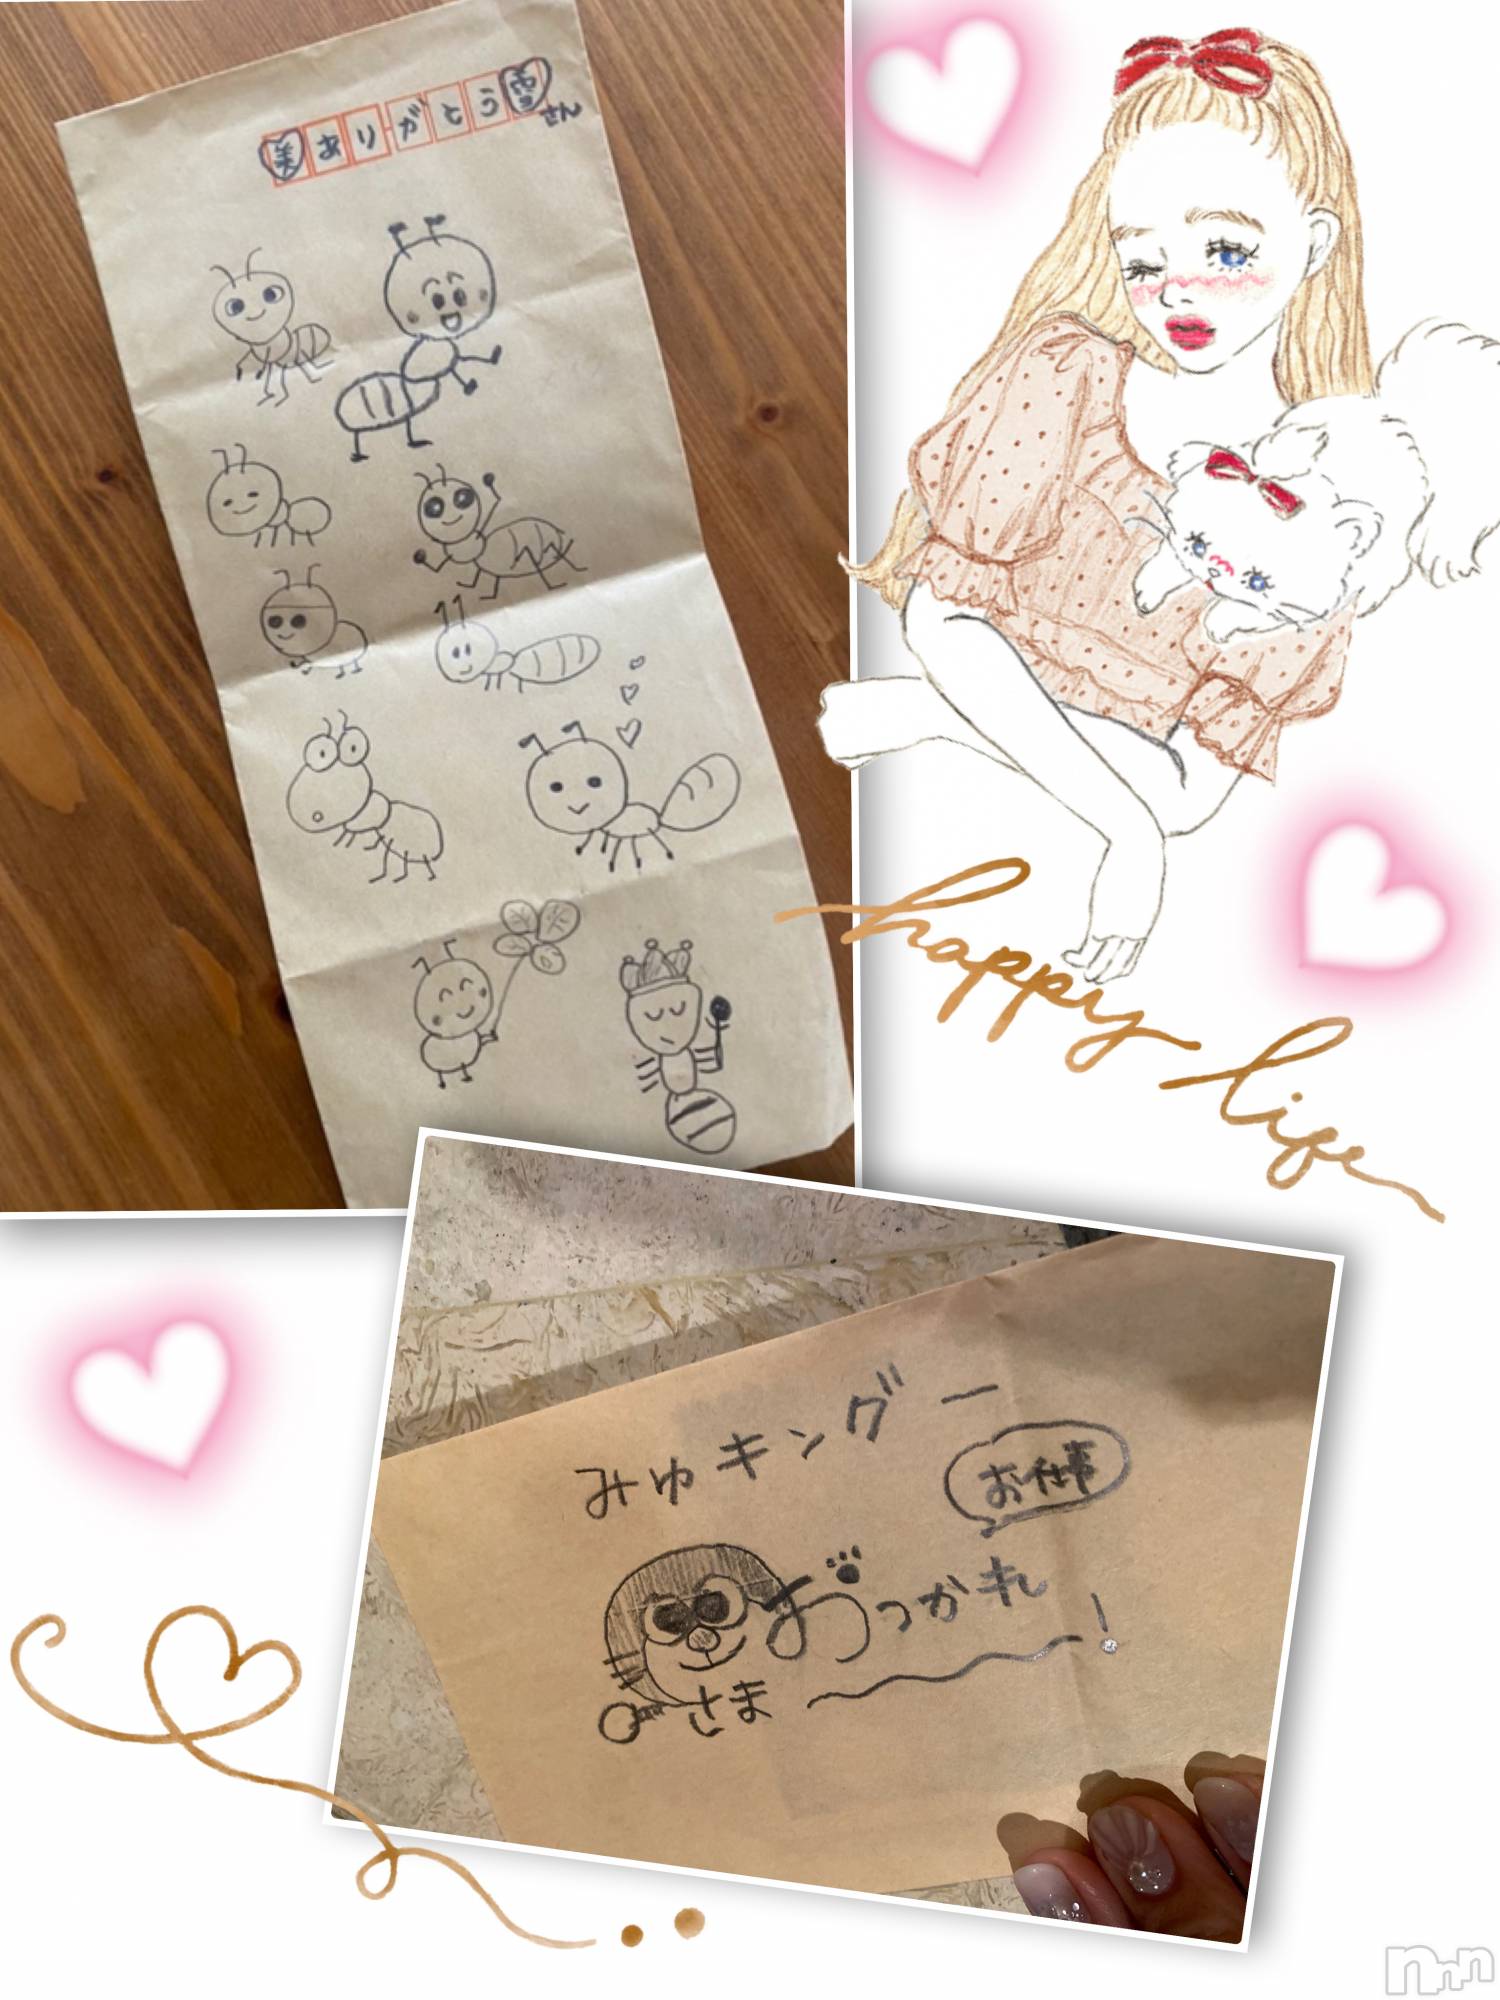 美ありがとう雪さん
happy life
みゅキングー
お仕事
おつかれ
さま〜!
nnn